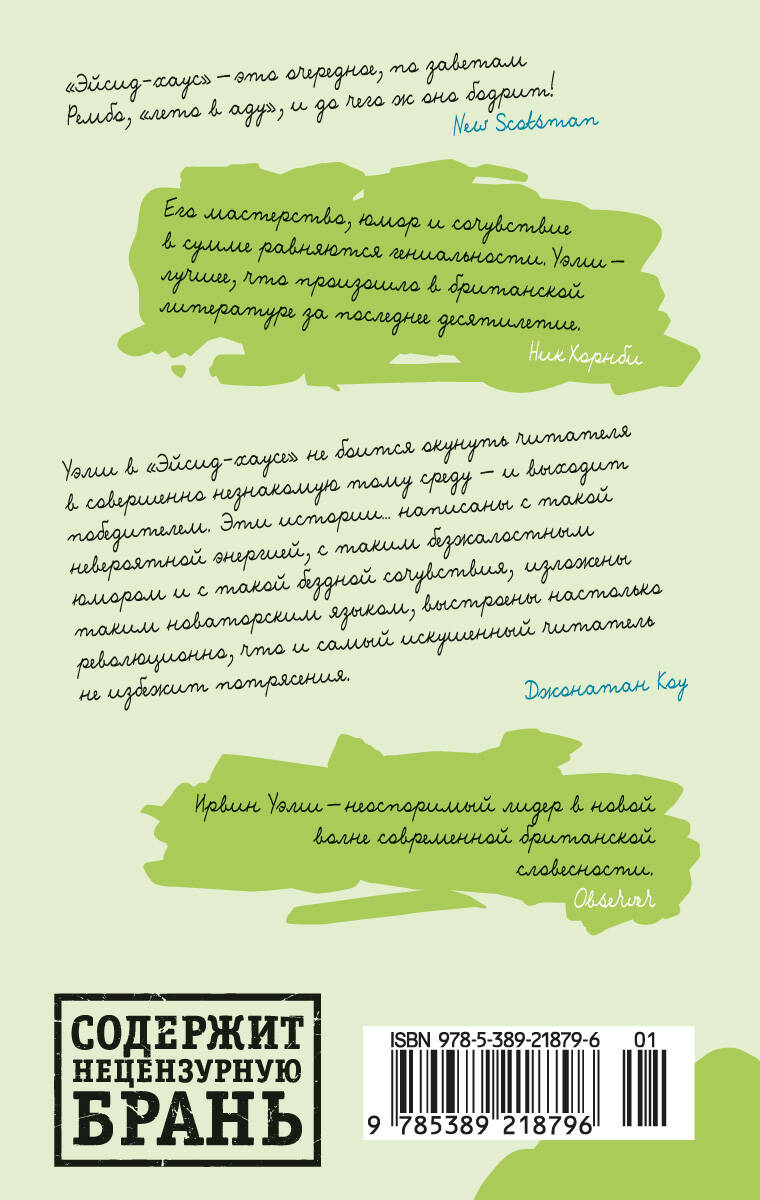 «Эйсид-хаус» — это очередное, по заветам
Рембо, «лето в аду», и до чего ж оно бодрит!
New Scotsman
Его мастерство, юмор и сочувствие
в сумме равняются гениальности. Уэлш —
лучшее, что произошло в британской
литературе за последнее десятилетие.
Ник Хорнби
Уэлш в «Эйсид-хаусе» не боится окунуть читателя
в совершенно незнакомую тому среду — и выходит
победителем. Эти истории... написаны с такой
невероятной энергией, с таким безжалостным
юмором и с такой бездной сочувствия, изложены
таким новаторским языком, выстроены настолько
революционно, что и самый искушенный читатель
не избежит потрясения.
Джонатан Коу
Ирвин Уэлш — неоспоримый лидер в новой
волне современной британской
словесности.
Observer
СОДЕРЖИТ
НЕЦЕНЗУРНУЮ
БРАНЬ
ISBN 978-5-389-21879-6 01
9 785389 218796